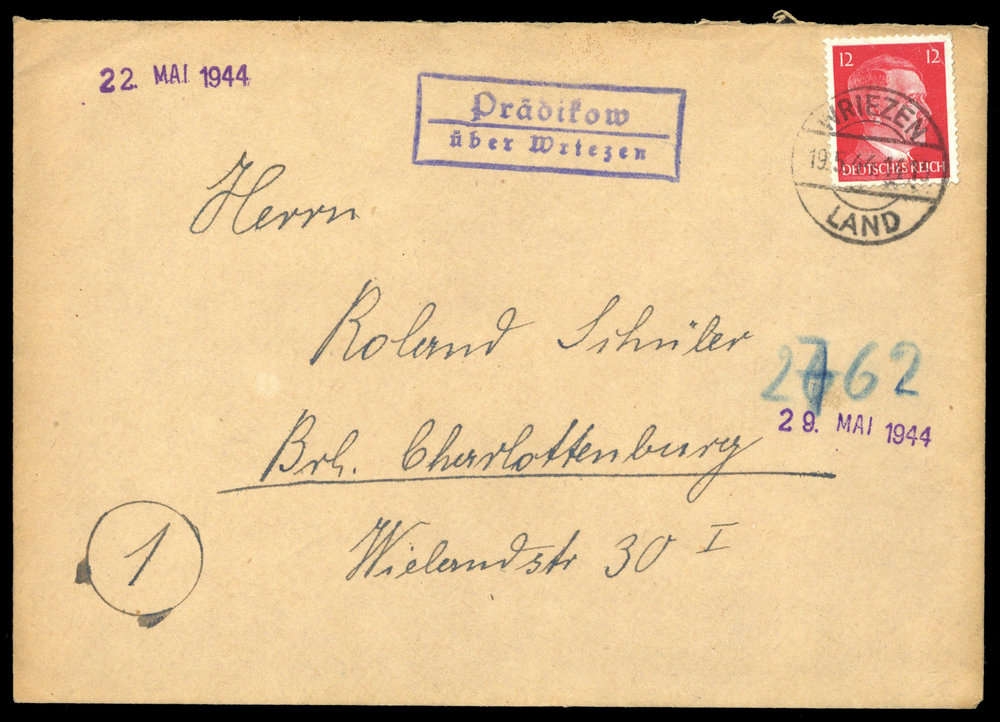 22. MAI 1944
Prädikow
über Wriezen
12 12
DEUTSCHES REICH
WRIEZEN
19.5.44
LAND
Herrn
Roland Schüler
2762
29. MAI 1944
Brl. Charlottenburg
1
Wielandstr 30 I